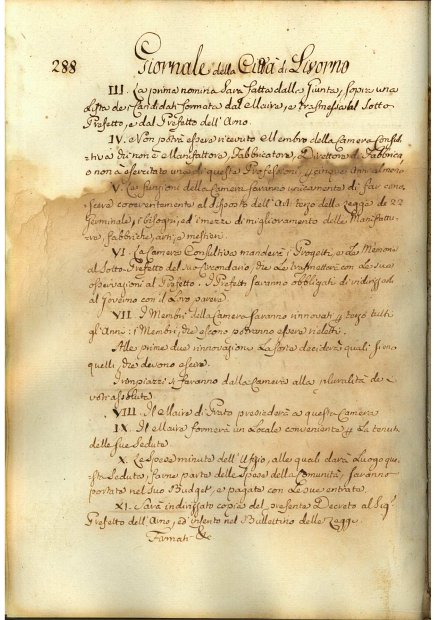 288 Giornale della Città di Livorno
III. La prima nomina sarà fatta dalla Giunta, sopra una
Lista de Candidati formata dal Maire, e trasmessa al Sotto
Prefetto, e dal Prefetto dell'Arno.
IV. Non potrà essere ricevuto Membro della Camera Consul
tiva chi non è Manifattore, Fabbricatore, Direttore di Fabbrica,
o non à esercitato una di queste Professioni cinque anni almeno
V. Le funzioni della Camera saranno unicamente di far cono
scere coerentemente al disposto dell'Art. terzo della Legge de 22
Germinale, i bisogni, ed i mezzi di miglioramento delle Manifattu
re, Fabbriche, arti, e mestieri.
VI. La Camera Consultiva manderà i Progetti, e Le Memorie
al Sotto Prefetto del suo Circondario, che Le trasmetterà con Le sue
osservazioni al Prefetto. I Prefetti saranno obbligati di indirizzarli
al Governo con il Loro parere.
VII. I Membri della Camera saranno rinnovati p terzo tutti
gl'Anni: i Membri, che escono potranno essere rieletti.
Alle prime due innovazioni La sorte deciderà quali siano
quelli, che devono escire.
I rimpiazzi si faranno dalla Camera alla pluralità de
voti assoluta.
VIII. Il Maire di Prato presiederà a questa Camera
IX. Il Maire fornirà un Locale conveniente p La tenuta
delle sue sedute.
X. Le spese minute dell'Ufizio, alle quali darà Luogo que,
sta seduta, farne parte delle spese della Comunità, saranno
portate nel suo Budget, e pagate con Le sue entrate.
XI. Sarà indirizzato copia del presente Decreto al Sigr.
Prefetto dell'Arno, ed inserito nel Bullettino delle Leggi.
Firmati &c